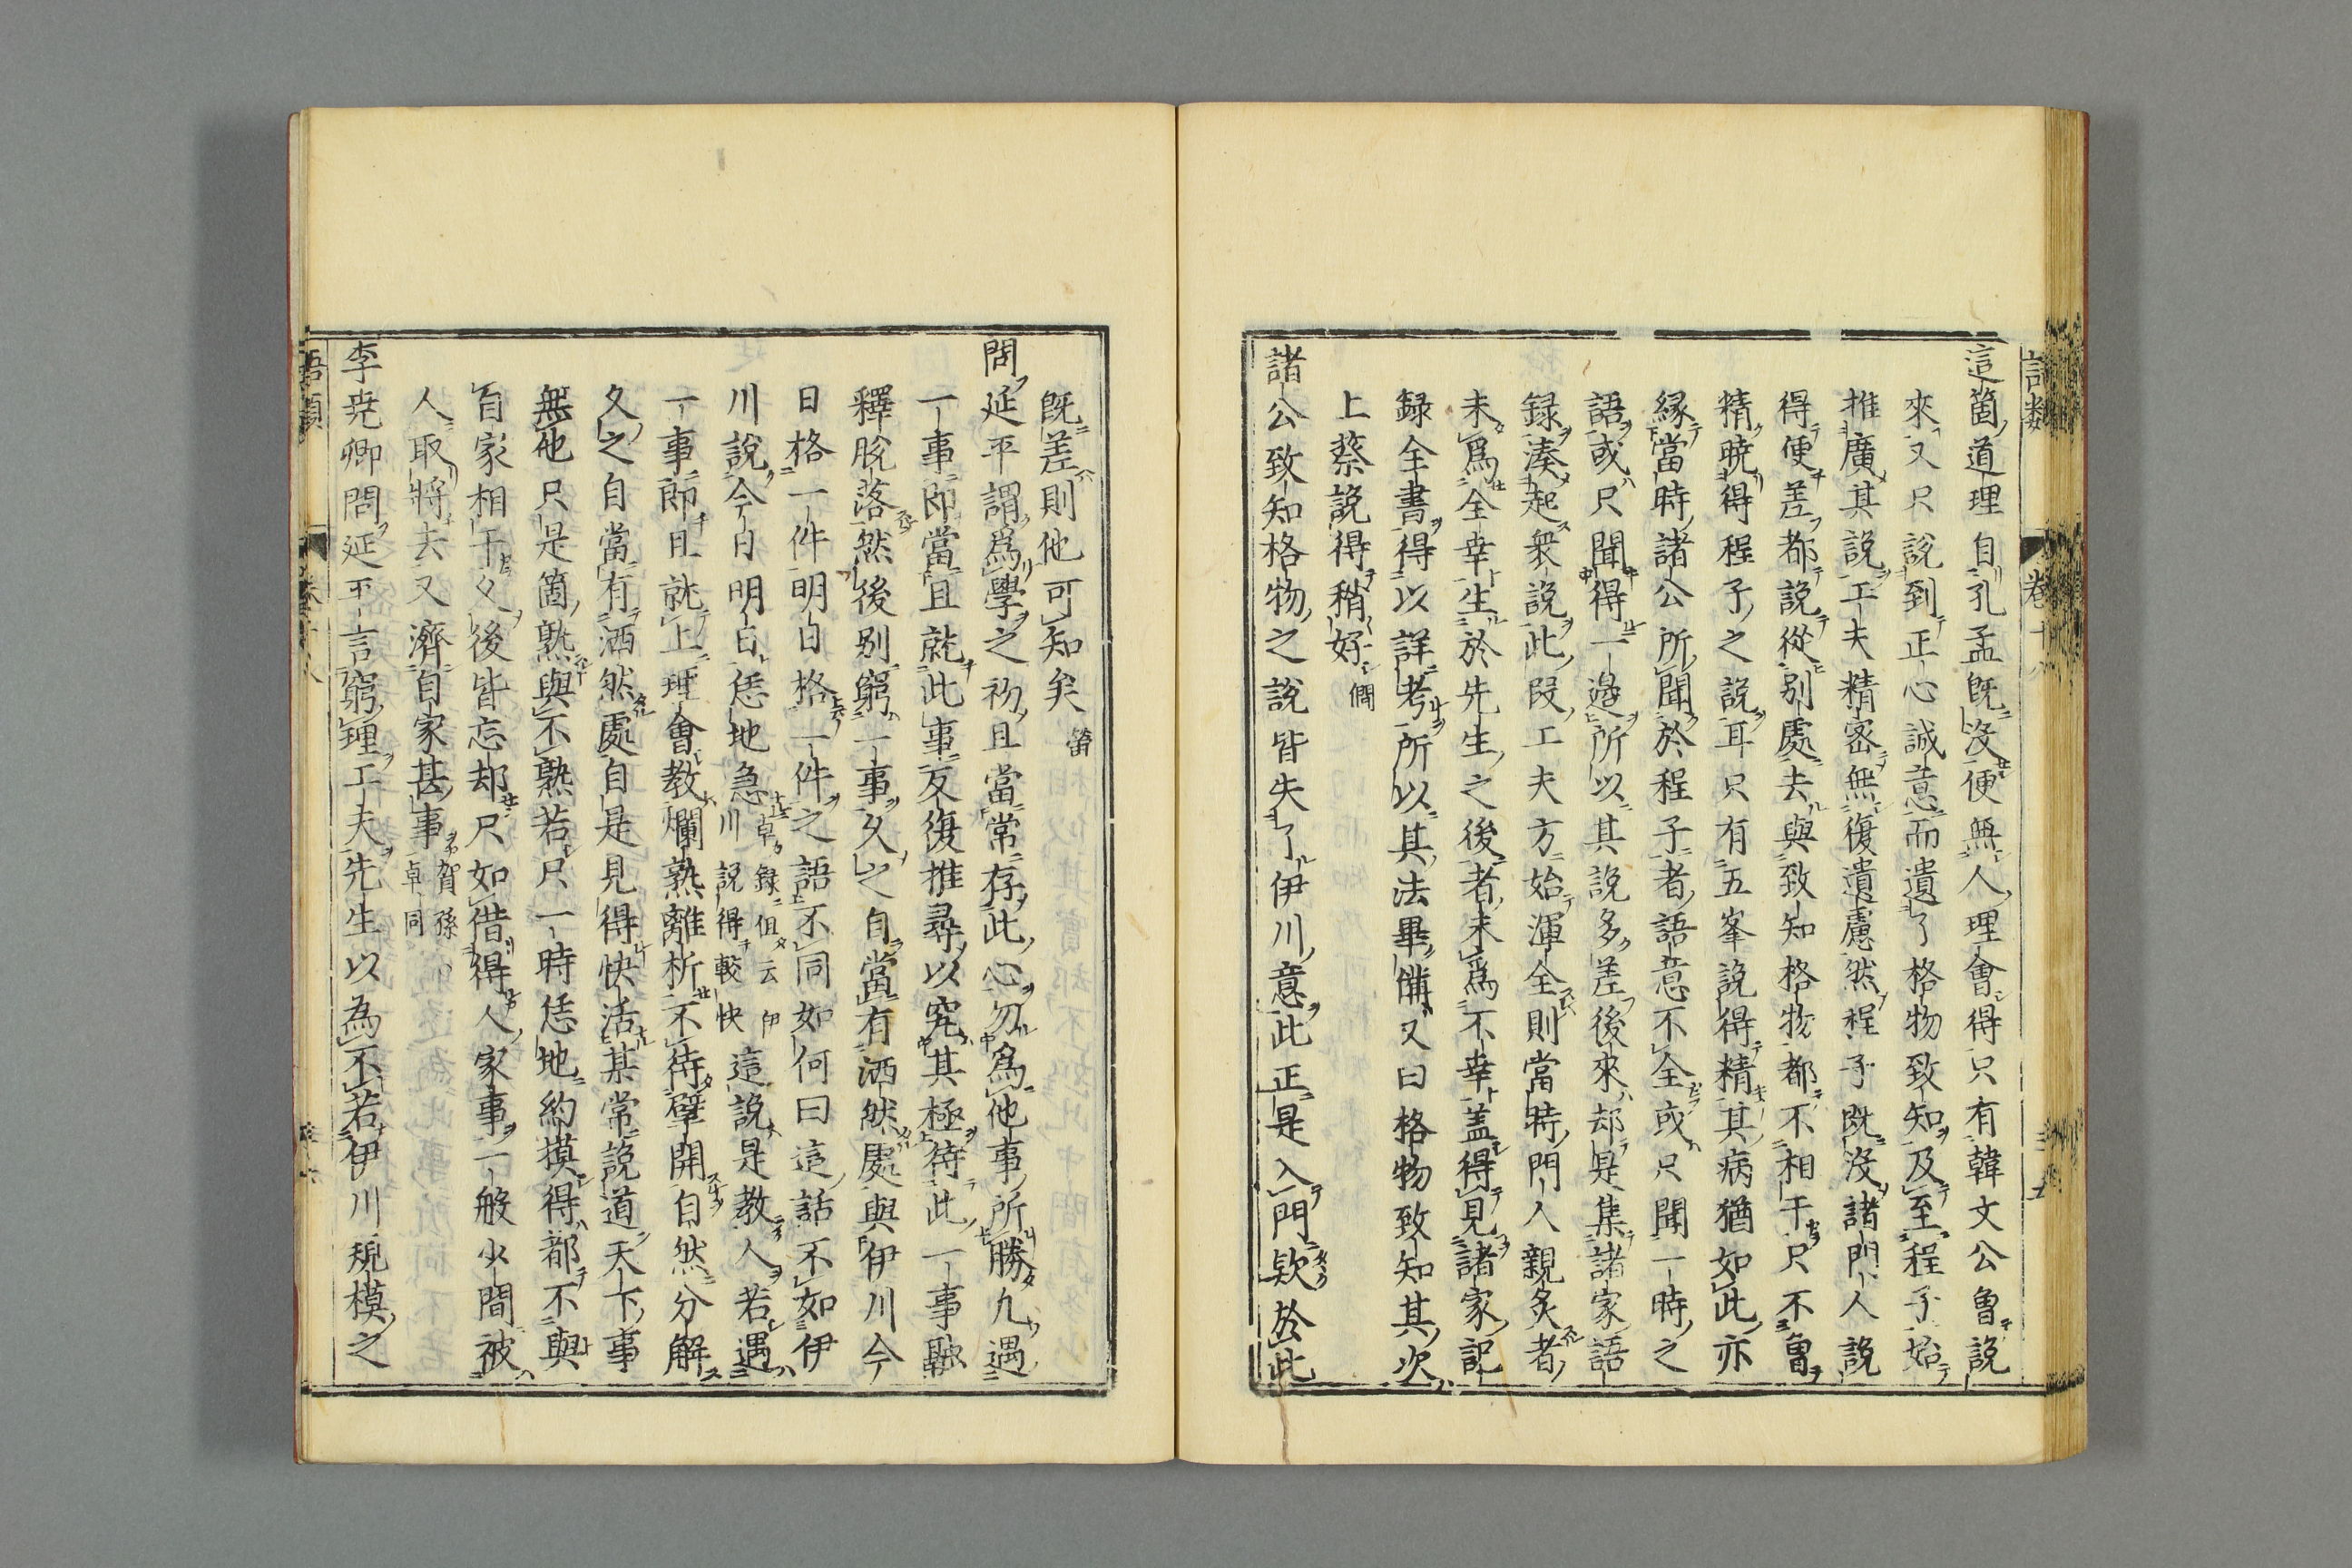 這箇道理自孔孟既沒便無人理會得只有韓文公曽說
來又只說到正心誠意而遺了格物致知及至程子始
推廣其說工夫精密無復遺慮然程子既沒諸門人說
得便差都說從別處去與致知格物都不相干只不曽
精曉得程子之說耳只有五峯說得精其病猶如此亦
緣當時諸公所聞於程子者語意不全或只聞一時之
語或只聞得一邊所以其說多差後來却是集諸家語
録湊起衆說此段工夫方始渾全則當時門人親炙者
未爲全幸生於先生之後者未爲不幸蓋得見諸家記
録全書得以詳考所以其法畢備又曰格物致知其次
上蔡說得稍好 僩
諸公致知格物之說皆失了伊川意此正是入門欵於此
既差則他可知矣 䈕
問延平謂爲學之初且當常存此心勿爲他事所勝凡遇
一事即當且就此事反復推尋以究其極待此一事融
釋脫落然後別窮一事久之自當有洒然處與伊川今
日格一件明日格一件之語不同如何曰這話不如伊
川說今日明日恁地急 卓録但云伊川說得較快 這說是教人若遇
一事即且就上理會教爛熟離析不待擘開自然分解
久之自當有洒然處自是見得快活某常說道天下事
無他只是箇熟與不熟若只一時恁地約摸得都不與
自家相干久後皆忘却只如借得人家事一般少間被
人取將去又濟自家甚事 賀孫 卓同
李尭卿問延平言窮理工夫先生以為不若伊川規模之
語類
卷十八